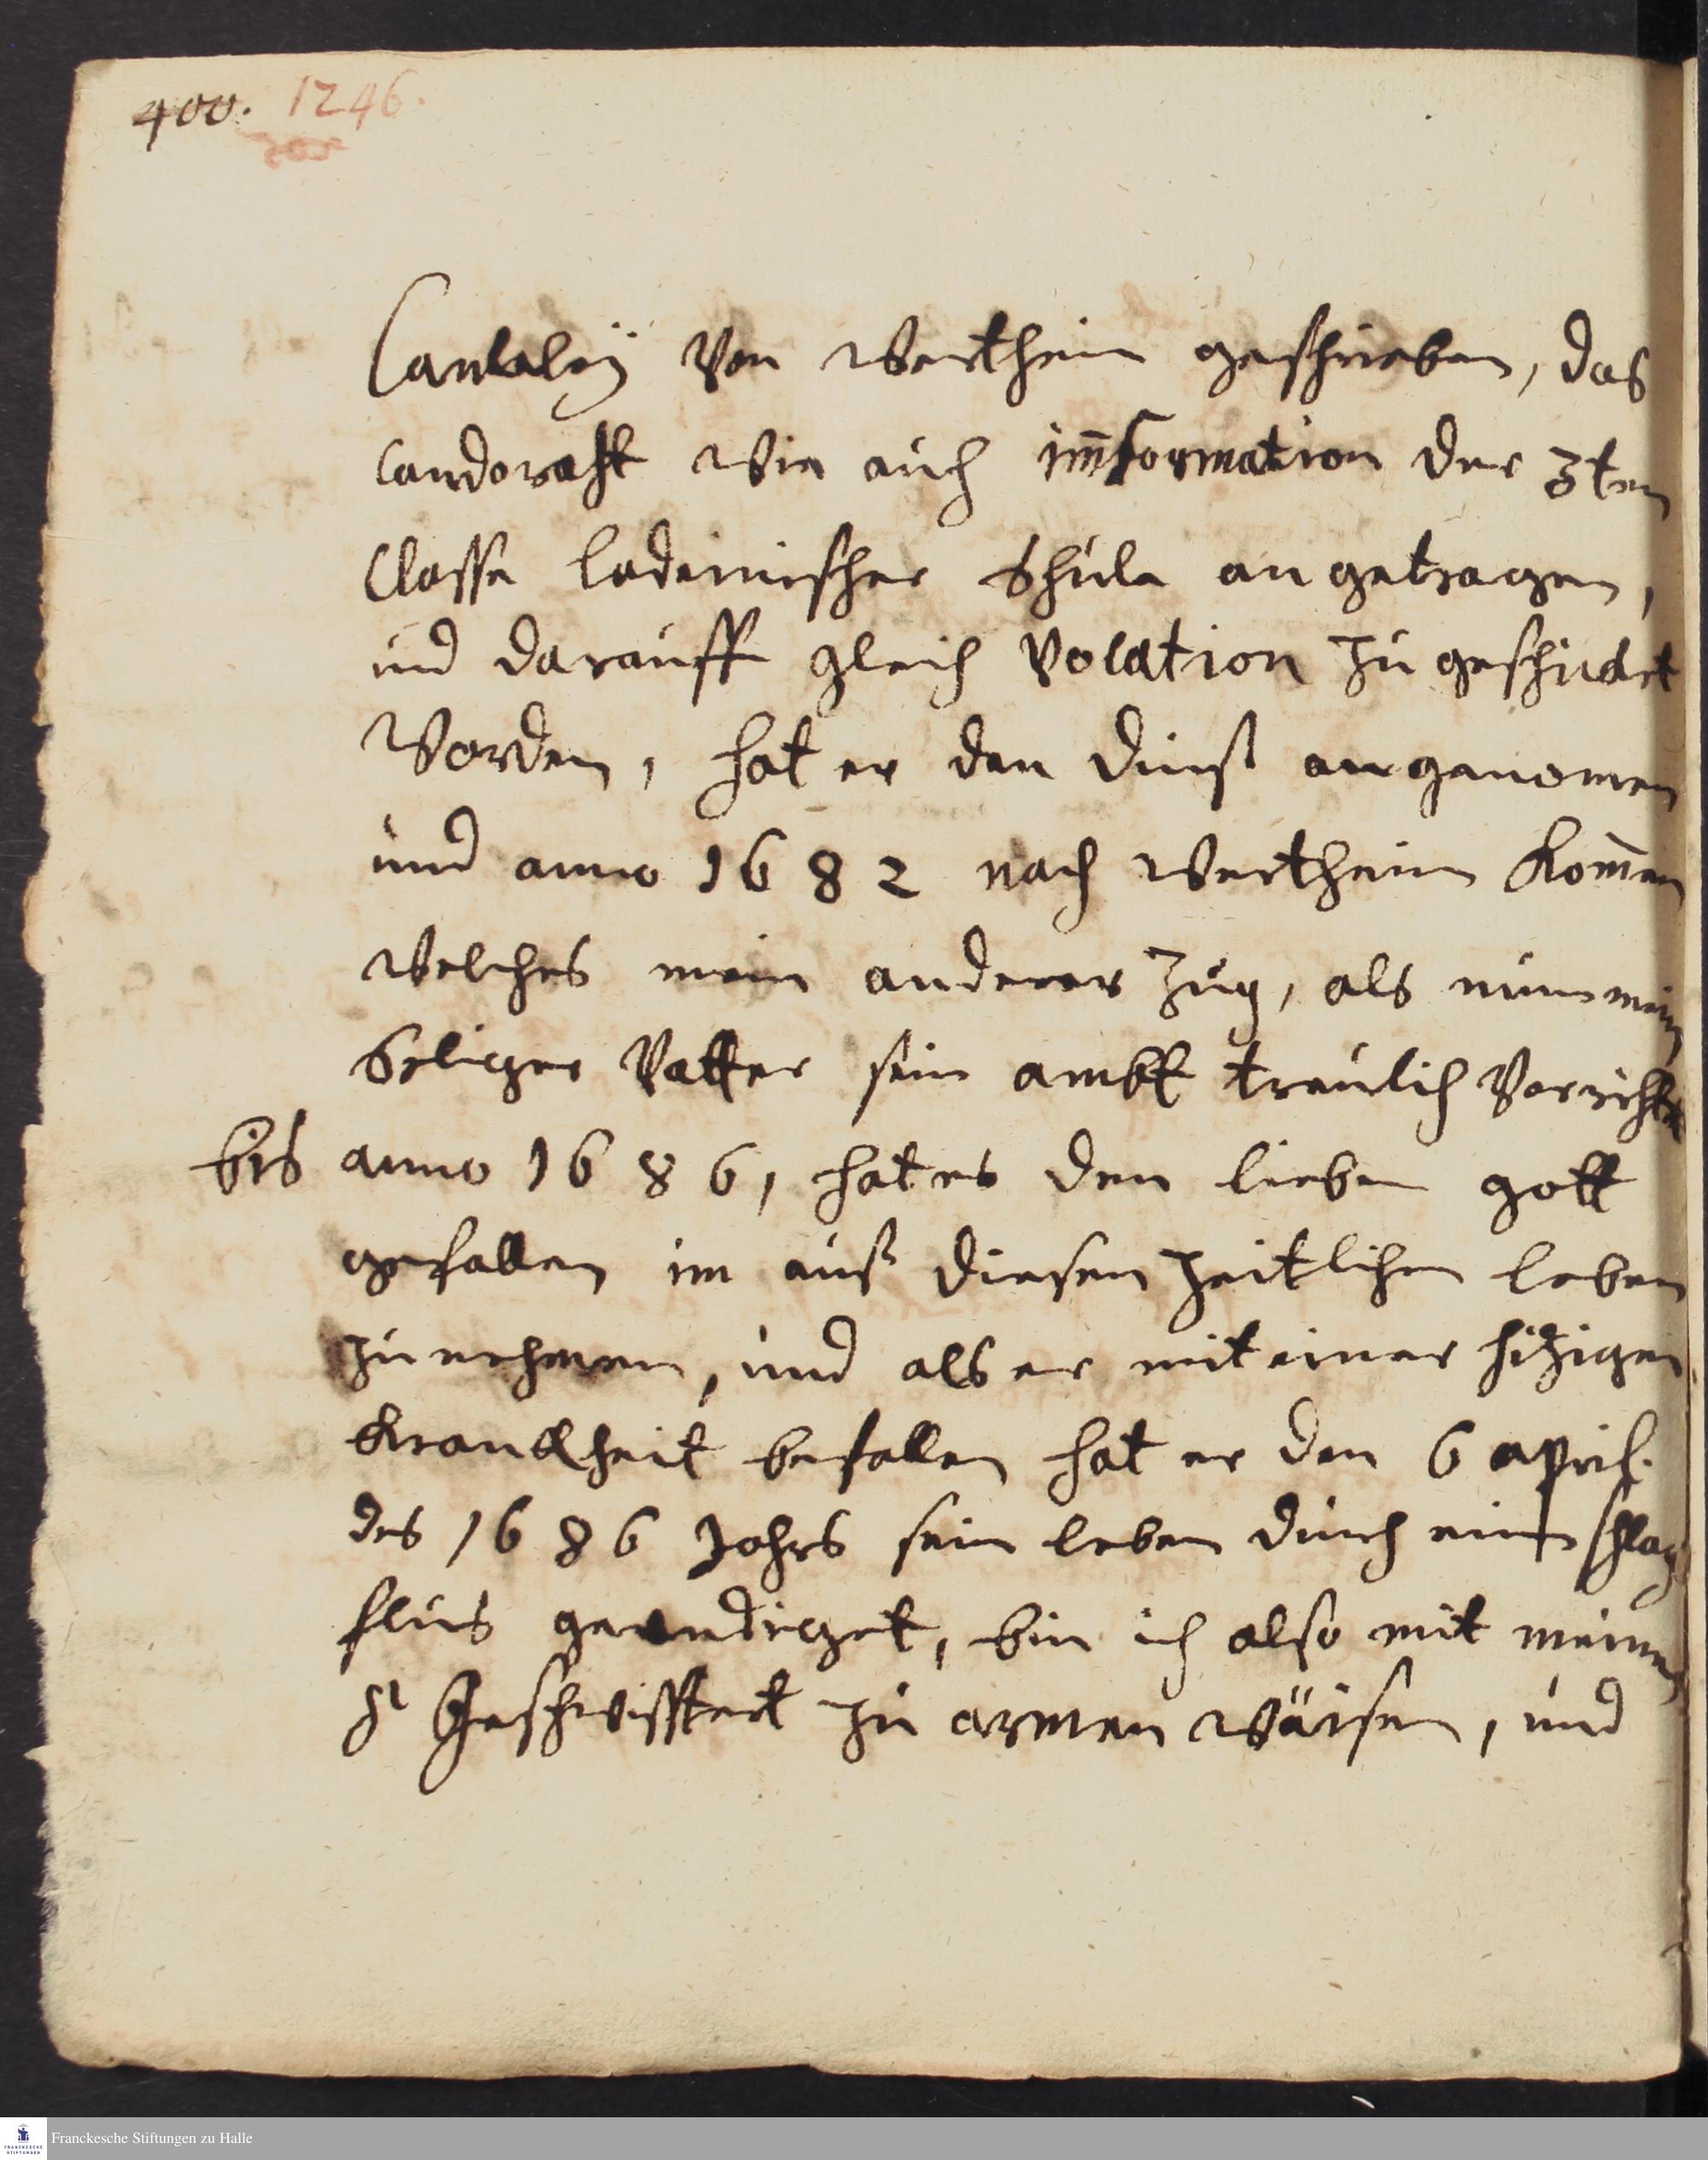 400. 1246.
Cantzleÿ von Wertheim geschrieben, das
Candorath wie auch im̄formation der 3ten
Classe ladeinischer Schule angetragen,
und darauff gleich Vocation zu geschickt
worden, hat er den dinst angenomen
und anno 1682 nach Wertheim kom̄en
welches mein anderer Zug, als nun mein
Seliger Vatter sein ambtt treulich Verricht
bis anno 1686, hat es den lieben gott
gefallen im auß diesen zeitlichen leben
zu nehmen, und als er mit einer hitzigen
Kranckheit befallen hat er den 6 april.
des 1686 Jahrs sein leben durch ein schlag
flus geendiget, bin ich also mit meinen
Geschwistert zu armen wäisen, und
Franckesche Stiftungen zu Halle